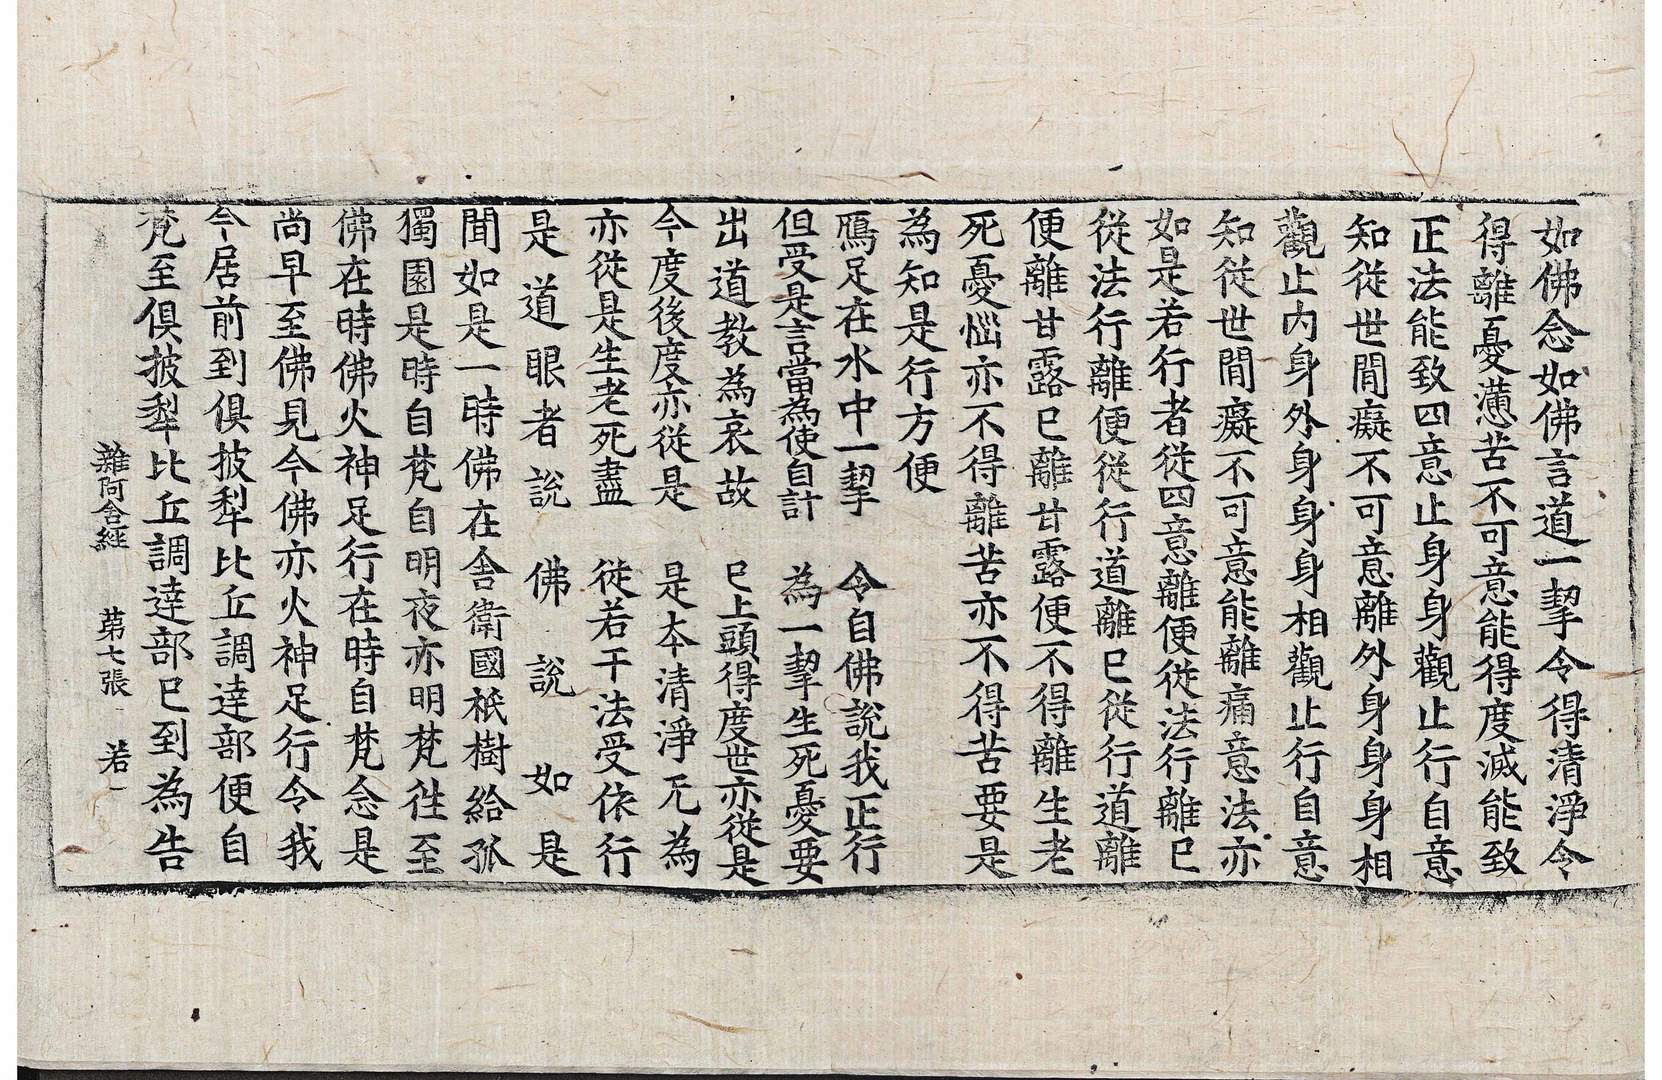 如佛念如佛言道一挈令得清淨令
得離憂懣苦不可意能得度滅能致
正法能致四意止身身觀止行自意
知從世間癡不可意離外身身身相
觀止內身外身身身相觀止行自意
知從世間癡不可意能離痛意法亦
如是若行者從四意離便從法行離已
從法行離便從行道離已從行道離
便離甘露已離甘露便不得離生老
死憂惱亦不得離苦亦不得苦要是
為知是行方便
鴈足在水中一挈　令自佛說我正行
但受是言當為使自計　為一挈生死憂要
出道教為哀故　已上頭得度世亦從是
今度後度亦從是　是本清淨无為
亦從是生老死盡　從若干法受依行
是道眼者說　佛說如是
聞如是一時佛在舍衛國祇樹給孤
獨園是時自梵自明夜亦明梵往至
佛在時佛火神足行在時自梵念是
尚早至佛見今佛亦火神足行令我
今居前到俱披犁比丘調達部便自
梵至俱披犁比丘調達部已到為告
雜阿含經　第七張　若